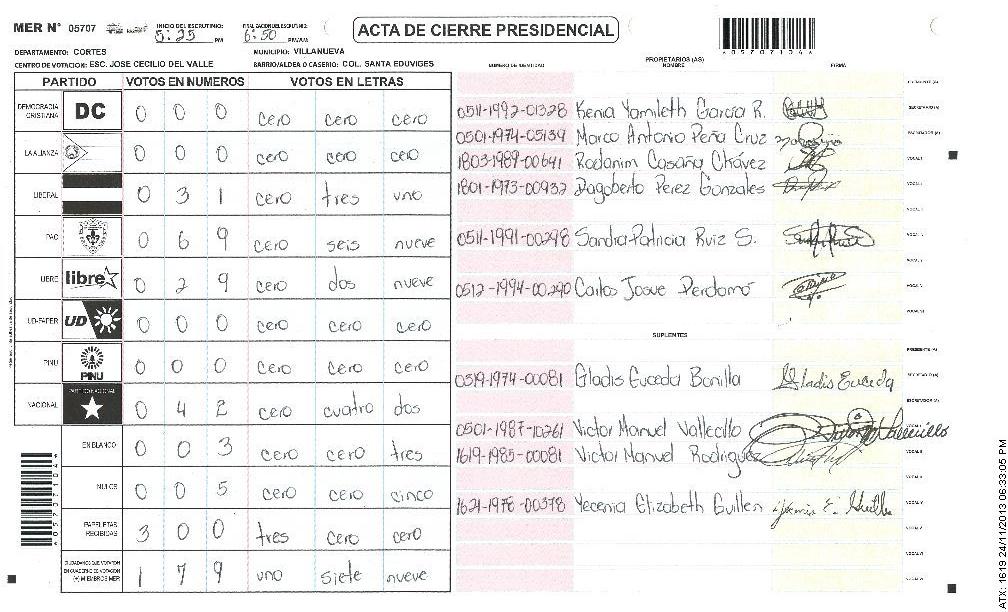 MER N° 05707
INICIO DEL ESCRUTINIO: 5:25 PM
FINALIZACION DEL ESCRUTINIO: 6:50 PM/AM
ACTA DE CIERRE PRESIDENCIAL
DEPARTAMENTO: CORTES
MUNICIPIO: VILLANUEVA
CENTRO DE VOTACION: ESC. JOSE CECILIO DEL VALLE
BARRIO/ALDEA O CASERIO: COL. SANTA EDUVIGES
PARTIDO VOTOS EN NUMEROS VOTOS EN LETRAS
DEMOCRACIA CRISTIANA DC 0 0 0 cero cero cero
LA ALIANZA 0 0 0 cero cero cero
LIBERAL 0 3 1 cero tres uno
PAC 0 6 9 cero seis nueve
LIBRE libre 0 2 9 cero dos nueve
UD-FAPER UD 0 0 0 cero cero cero
PINU PINU 0 0 0 cero cero cero
NACIONAL PARTIDO NACIONAL 0 4 2 cero cuatro dos
EN BLANCO 0 0 3 cero cero tres
NULOS 0 0 5 cero cero cinco
PAPELETAS RECIBIDAS 3 0 0 tres cero cero
CIUDADANOS QUE VOTARON EN CUADERNO DE VOTACION (+) MIEMBROS MER 1 7 9 uno siete nueve
PROPIETARIOS (AS)
NUMERO DE IDENTIDAD NOMBRE FIRMA
PRESIDENTE (A)
0511-1992-01328 Kenia Yamileth García R. SECRETARIO (A)
0501-1974-05139 Marco Antonio Peña Cruz ESCRUTADOR (A)
1803-1989-00641 Rodanim Casaña Chávez VOCAL I
1801-1973-00932 Dagoberto Perez Gonzales
0511-1991-00298 Sandra Patricia Ruiz S.
0512-1994-00290 Carlos Josue Perdomo
SUPLENTES
PRESIDENTE (A)
0519-1974-00081 Gladis Euceda Bonilla Gladis Euceda SECRETARIO (A)
ESCRUTADOR (A)
0501-1987-10261 Victor Manuel Vallecillo
1619-1985-00081 Victor Manuel Rodriguez
1621-1976-00378 Yecenia Elizabeth Guillen
ATX: 1619 24/11/2013 06:33:05 PM